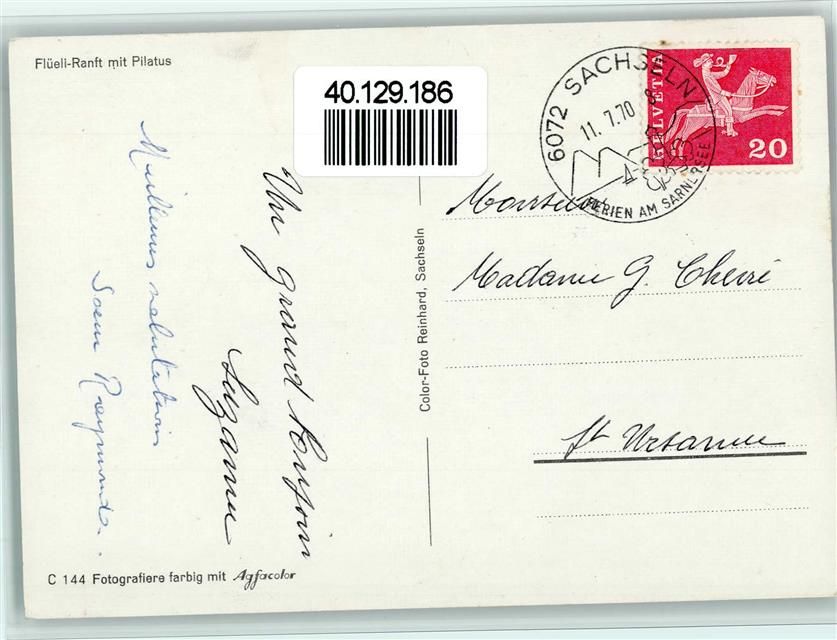 Flüeli-Ranft mit Pilatus
40.129.186
6072 SACHSELN
11.7.70
FERIEN AM SARNERSEE
HELVETIA
20
Un grand bonjour
Suzanne
Meilleures salutations
Soeur Raymonde.
Color-Foto Reinhard, Sachseln
Monsieur
Madame G. Chevré
St Ursanne
C 144 Fotografiere farbig mit Agfacolor